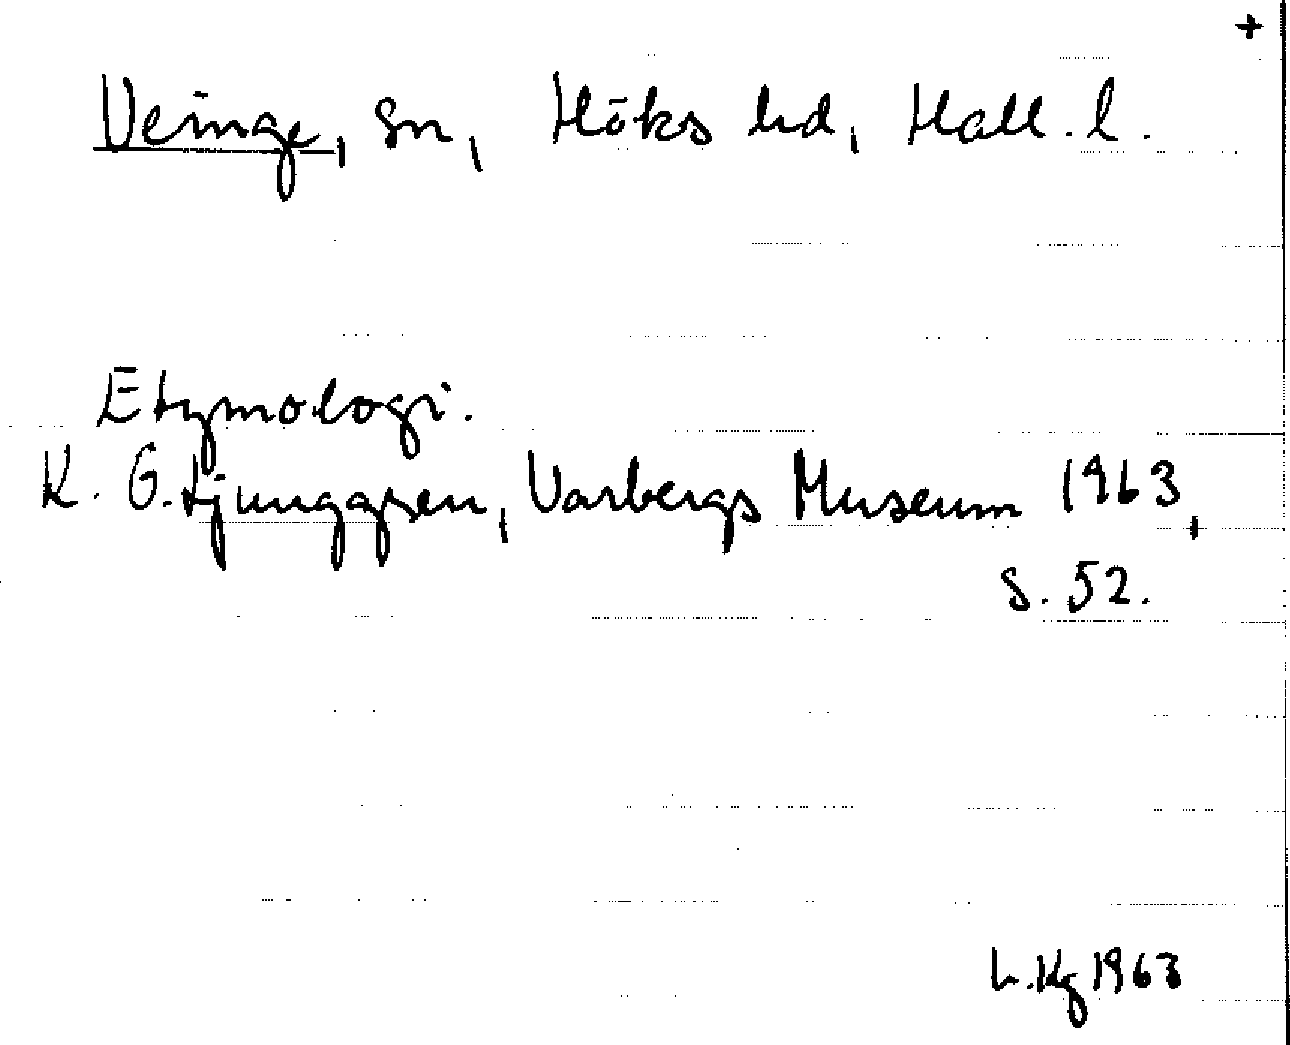 +
Veinge, sn, Höks hd, Hall. l.
Etymologi.
K. G. Ljunggren, Varbergs Museum 1963,
s. 52.
L. Kg 1963